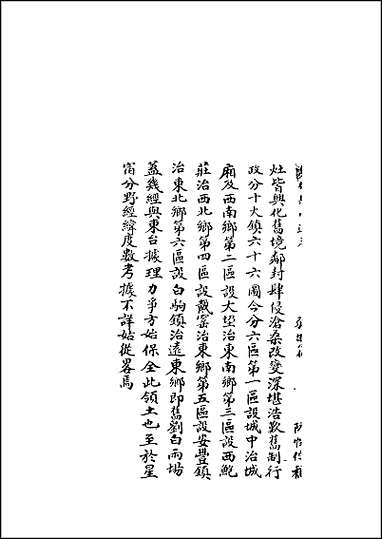 灶皆興化舊境鄰封肆侵滄桑改變深堪浩歎舊制行
政分十大鎮六十六圖今分六區第一區設城中治城
廂及西南鄉第二區設大垡治東南鄉第三區設西鮑
莊治西北鄉第四區設戴窰治東鄉第五區設安豐鎮
治東北鄉第六區設白駒鎮治遠東鄉即舊劉白兩場
蓋幾經與東台據理力爭方始保全此領土也至於星
宿分野經緯度數考據不詳姑從畧焉